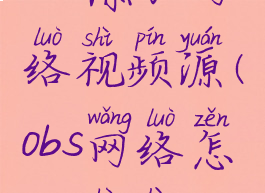 luò shì pín yuán
络视频源(
wǎng luò zěn
obs网络怎